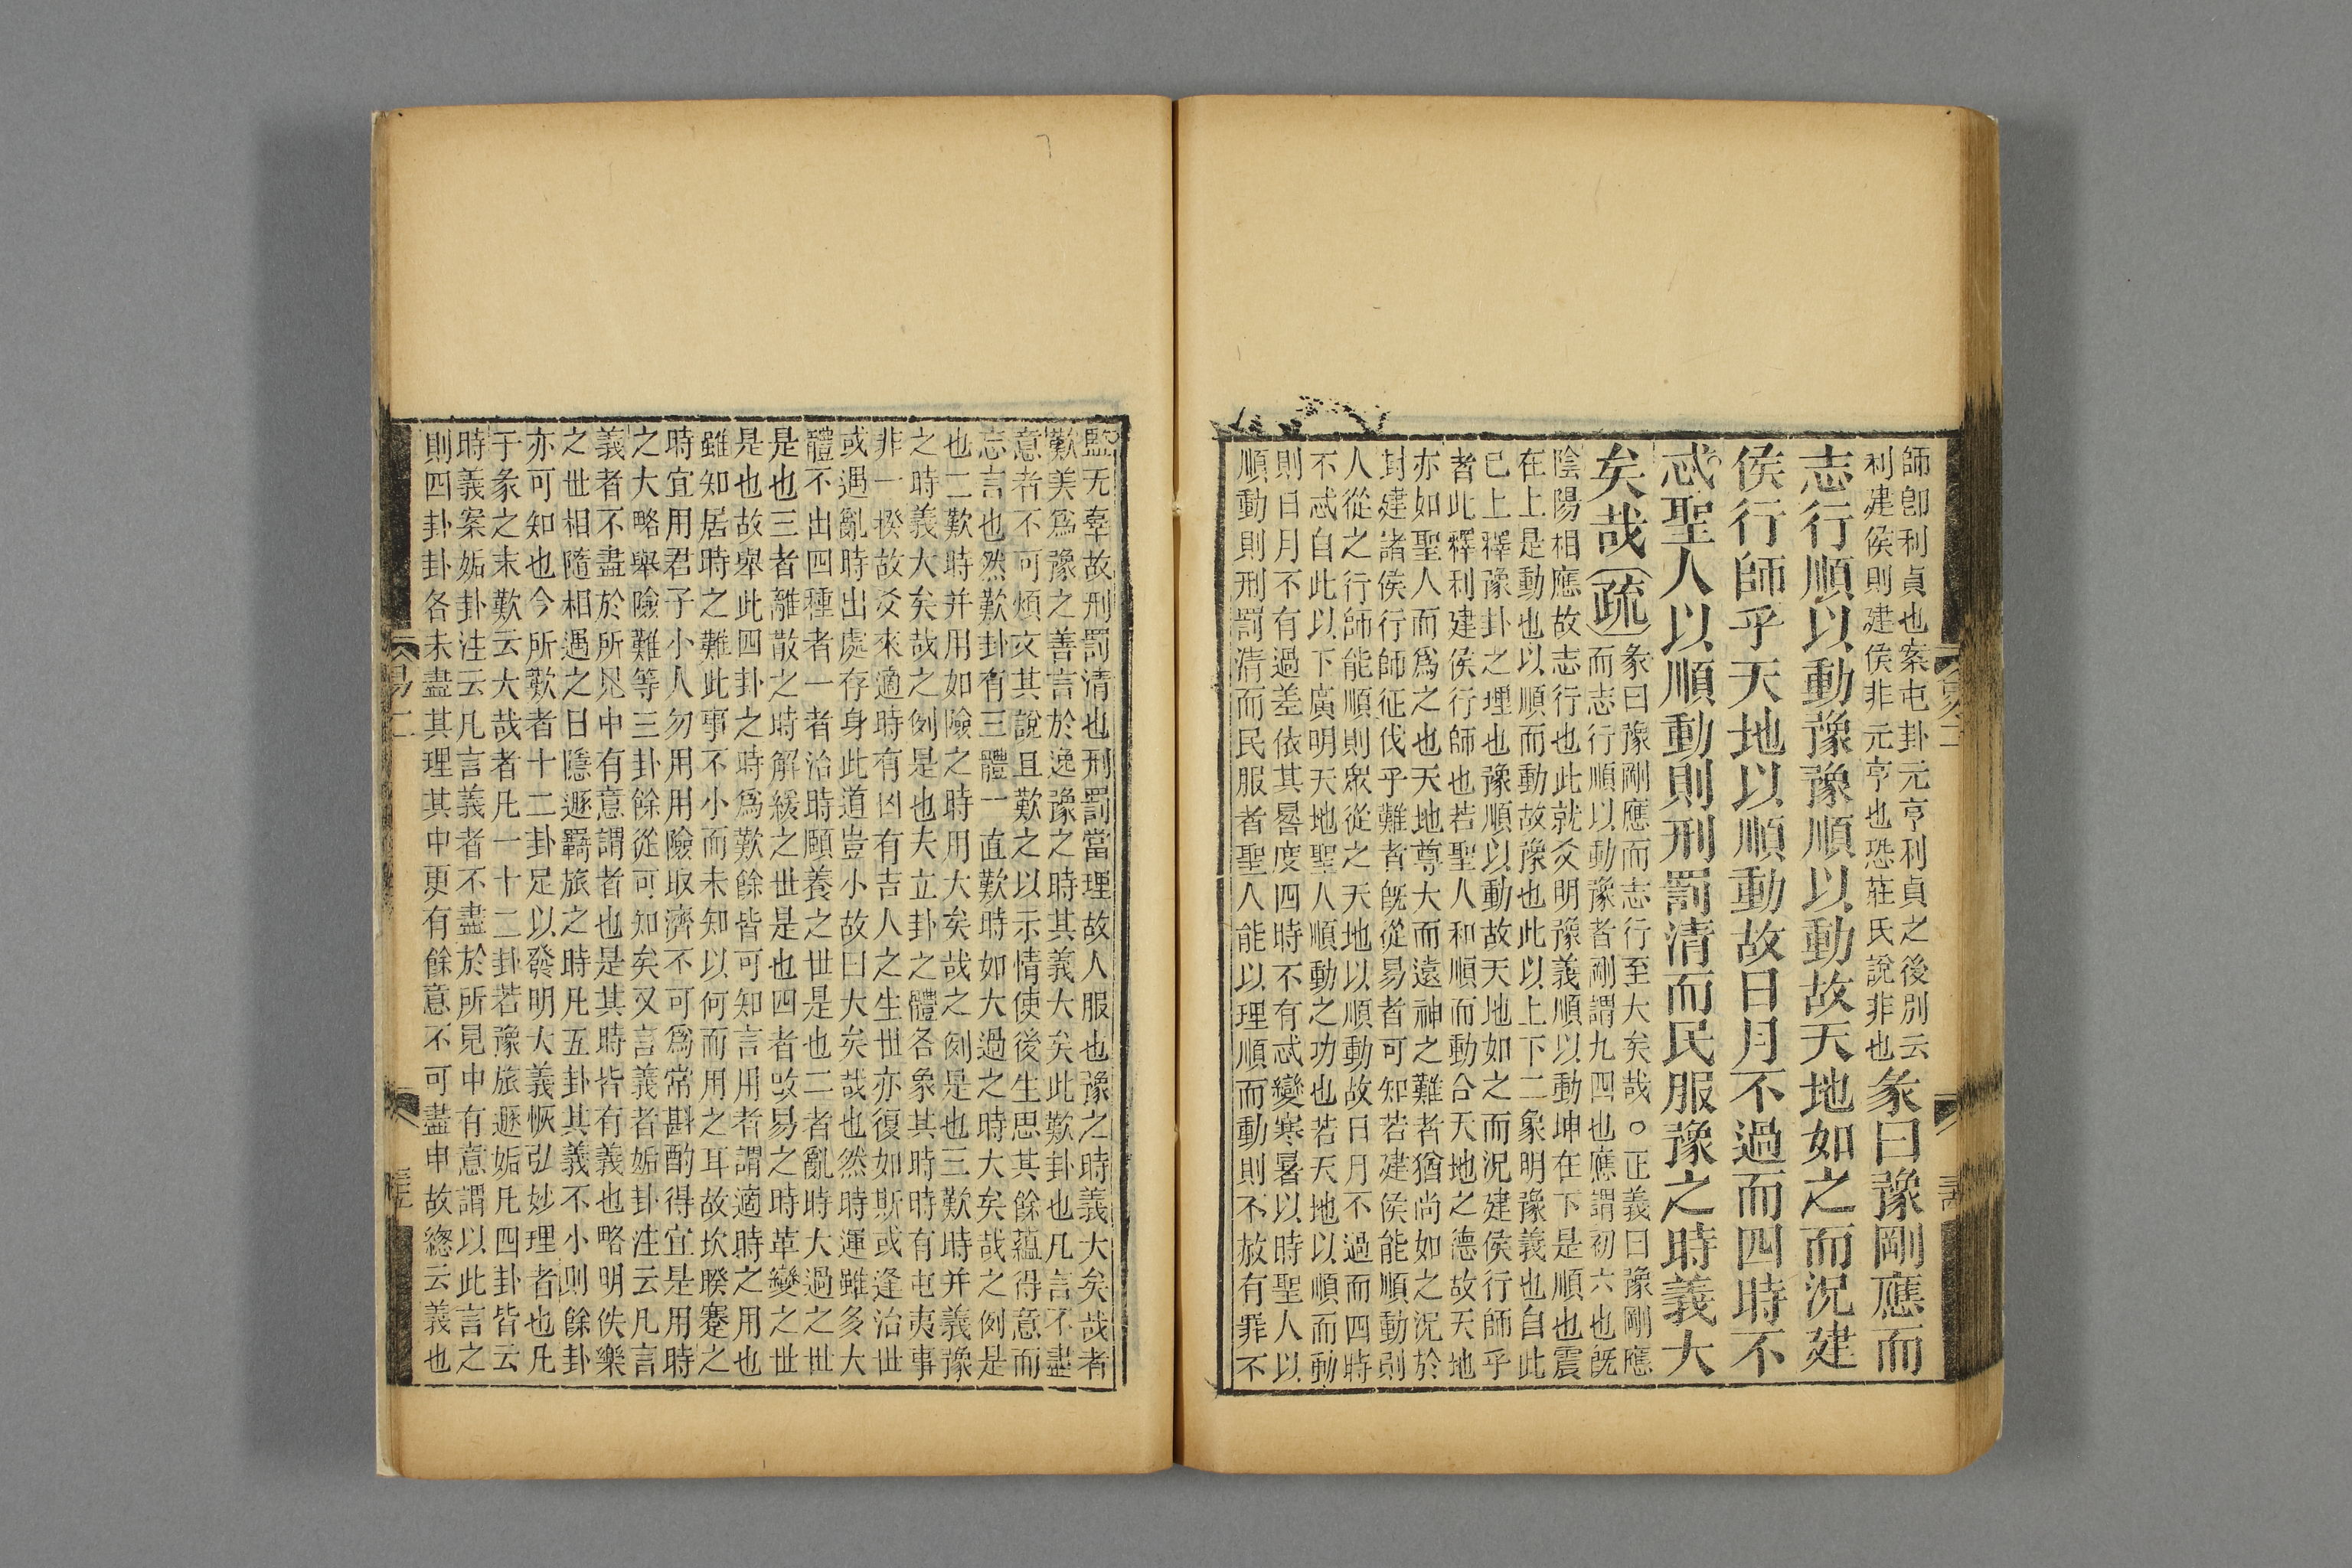 師卽利貞也案屯卦元亨利貞之後別云
利建侯則建侯非元亨也恐莊氏說非也
彖曰豫剛應而
志行順以動豫豫順以動故天地如之而況建
侯行師乎天地以順動故日月不過而四時不
忒聖人以順動則刑罰清而民服豫之時義大
矣哉疏
彖曰豫剛應而志行至大矣哉○正義曰豫剛應
而志行順以動豫者剛謂九四也應謂初六也旣
陰陽相應故志行也此就爻明豫義順以動坤在下是順也震
在上是動也以順而動故豫也此以上下二象明豫義也自此
已上釋豫卦之理也豫順以動故天地如之而況建侯行師乎
者此釋利建侯行師也若聖人和順而動合天地之德故天地
亦如聖人而爲之也天地尊大而遠神之難者猶尚如之況於
封建諸侯行師征伐乎難者旣從易者可知若建侯能順動則
人從之行師能順則衆從之天地以順動故日月不過而四時
不忒自此以下廣明天地聖人順動之功也若天地以順而動
則日月不有過差依其晷度四時不有忒變寒暑以時聖人以
順動則刑罰清而民服者聖人能以理順而動則不放有罪不
監无辜故刑罰清也刑罰當理故人服也豫之時義大矣哉者
歎美爲豫之善言於逸豫之時其義大矣此歎卦也凡言不盡
意者不可煩文其說且歎之以示情使後生思其餘蘊得意而
忘言也然歎卦有三體一直歎時如大過之時大矣哉之例是
也二歎時并用如險之時用大矣哉之例是也三歎時并義豫
之時義大矣哉之例是也夫立卦之體各象其時時有屯夷事
非一揆故爻來適時有凶有吉人之生世亦復如斯或逢治世
或遇亂時出處存身此道豈小故曰大矣哉也然時運雖多大
體不出四種者一者治時頤養之世是也二者亂時大過之世
是也三者離散之時解緩之世是也四者改易之時革變之世
是也故舉此四卦之時爲歎餘皆可知言用者謂適時之用也
雖知居時之難此事不小而未知以何而用之耳故坎睽蹇之
時宜用君子小人勿用用險取濟不可爲常斟酌得宜是用時
之大略舉險難等三卦餘從可知矣又言義者姤卦注云凡言
義者不盡於所見中有意謂者也是其時皆有義也略明佚樂
之世相隨相遇之日隱遯羇旅之時凡五卦其義不小則餘卦
亦可知也今所歎者十二卦足以發明大義恢弘妙理者也凡
于彖之末歎云大哉者凡一十二卦若豫旅遯姤凡四卦皆云
時義案姤卦注云凡言義者不盡於所見中有意謂以此言之
則四卦卦各未盡其理其中更有餘意不可盡申故緫云義也
易二